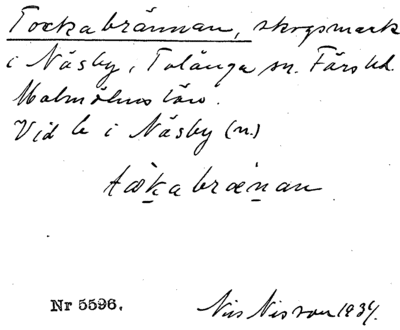 Tockabrännan, skogsmark
i Näsby, Tolånga sn. Färs hd.
Malmöhus län.
Vid b i Näsby (n.)
tåkabrænan
Nr 5596.
Nils Nilsson 1934.